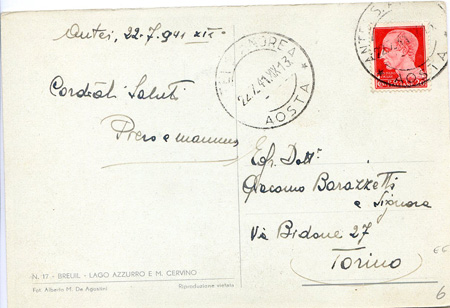 Antei, 22-7-941 XIX
Cordiali Saluti
Piero e mamma
Egr. Dott.
Giacomo Barazzetti
e Signora
Via Bidone 27
Torino
ANDREA
22.7.41.XIX 13
AOSTA
ANTEI S.
AOSTA
N. 17 - BREUIL - LAGO AZZURRO E M. CERVINO
Fot. Alberto M. De Agostini
Riproduzione vietata
6